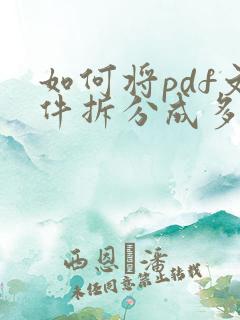 如何将pdf文
件拆分成多
西恩·潘
未经同意禁止转载